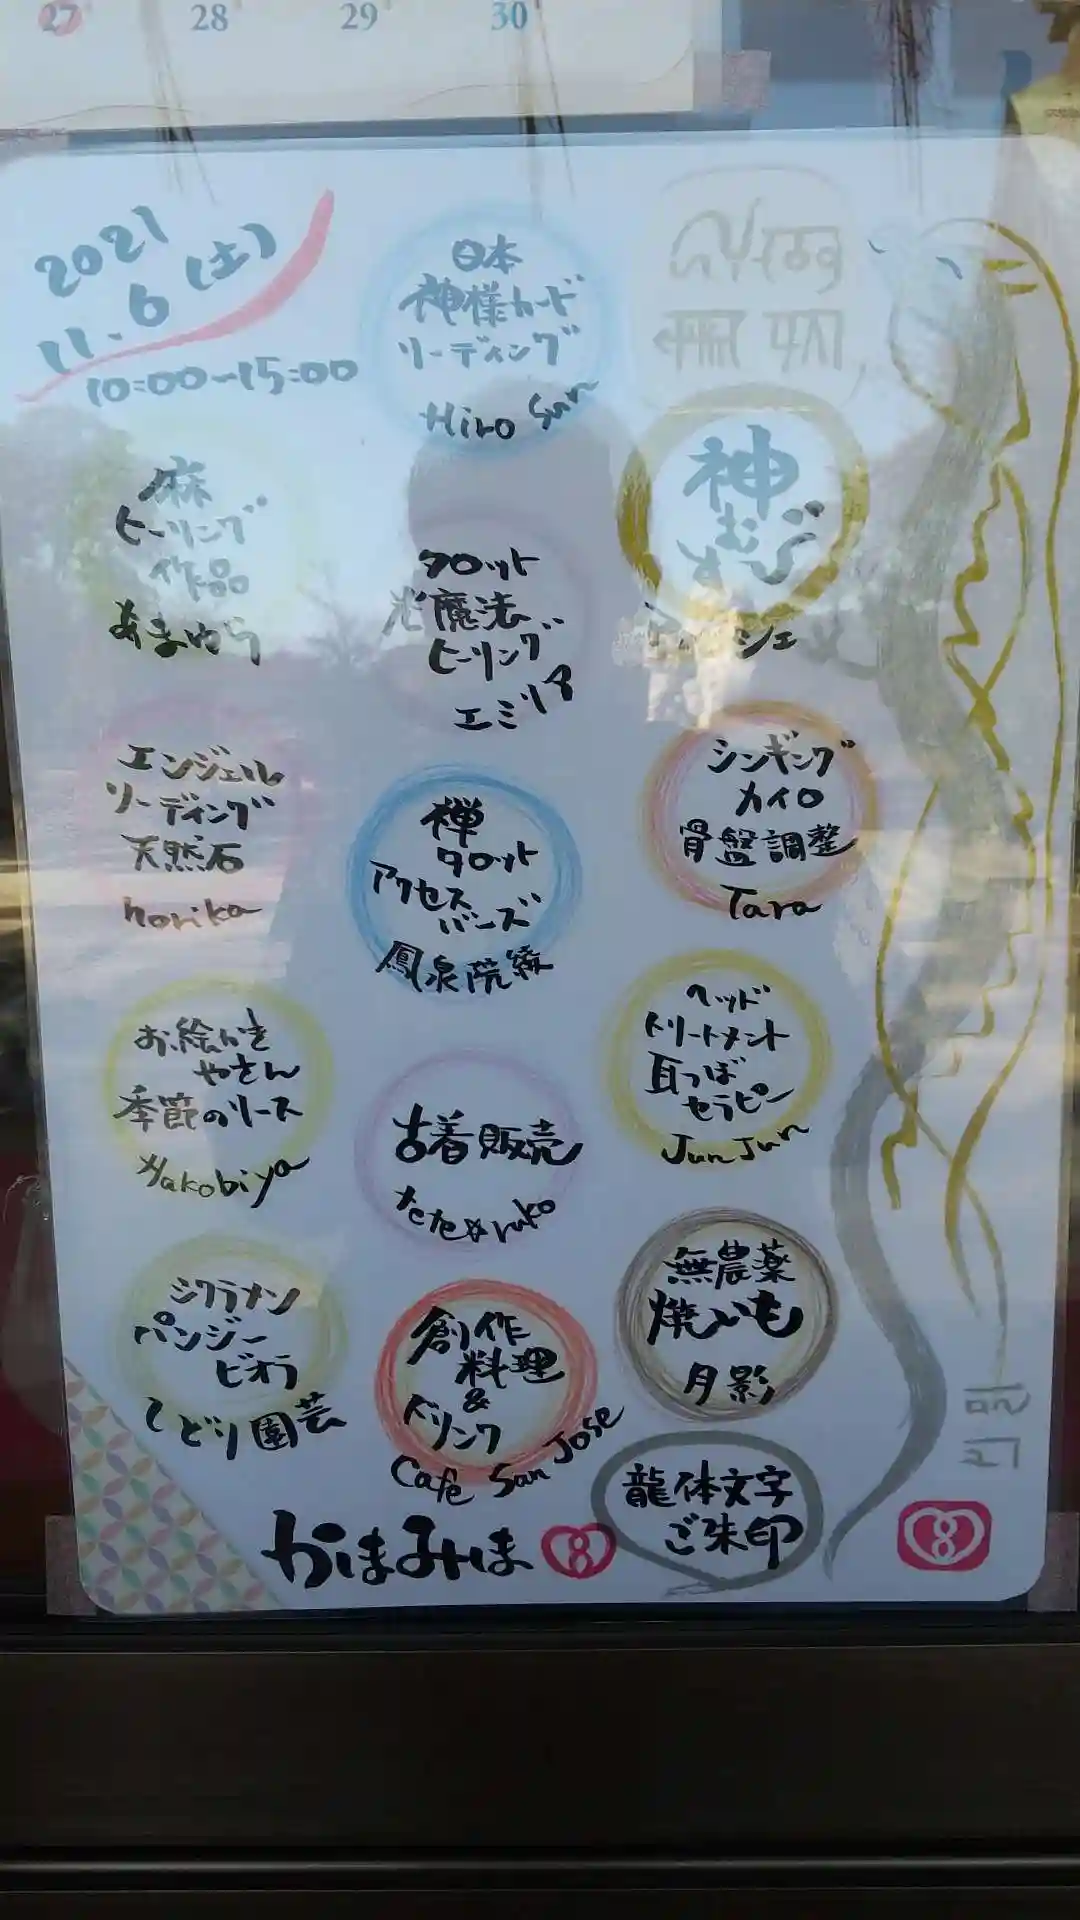 27 28 29 30
2021
11.6(土)
10:00~15:00
日本
神様カード
リーディング
Hiro Sun
神
むすび
麻
ヒーリング
作品
あまゆら
タロット
光魔法
ヒーリング
エミリア
エンジェル
リーディング
天然石
norika
禅
タロット
アクセス
バーズ
鳳泉院綾
シンギング
カイロ
骨盤調整
Tara
お絵かき
やさん
季節のリース
Yakobiya
古着販売
tete☆ruko
ヘッド
トリートメント
耳つぼ
セラピー
JunJun
シクラメン
パンジー
ビオラ
しどり園芸
創作
料理
&
ドリンク
Cafe San Jose
無農薬
焼いも
夕影
龍体文字
ご朱印
かほみほ